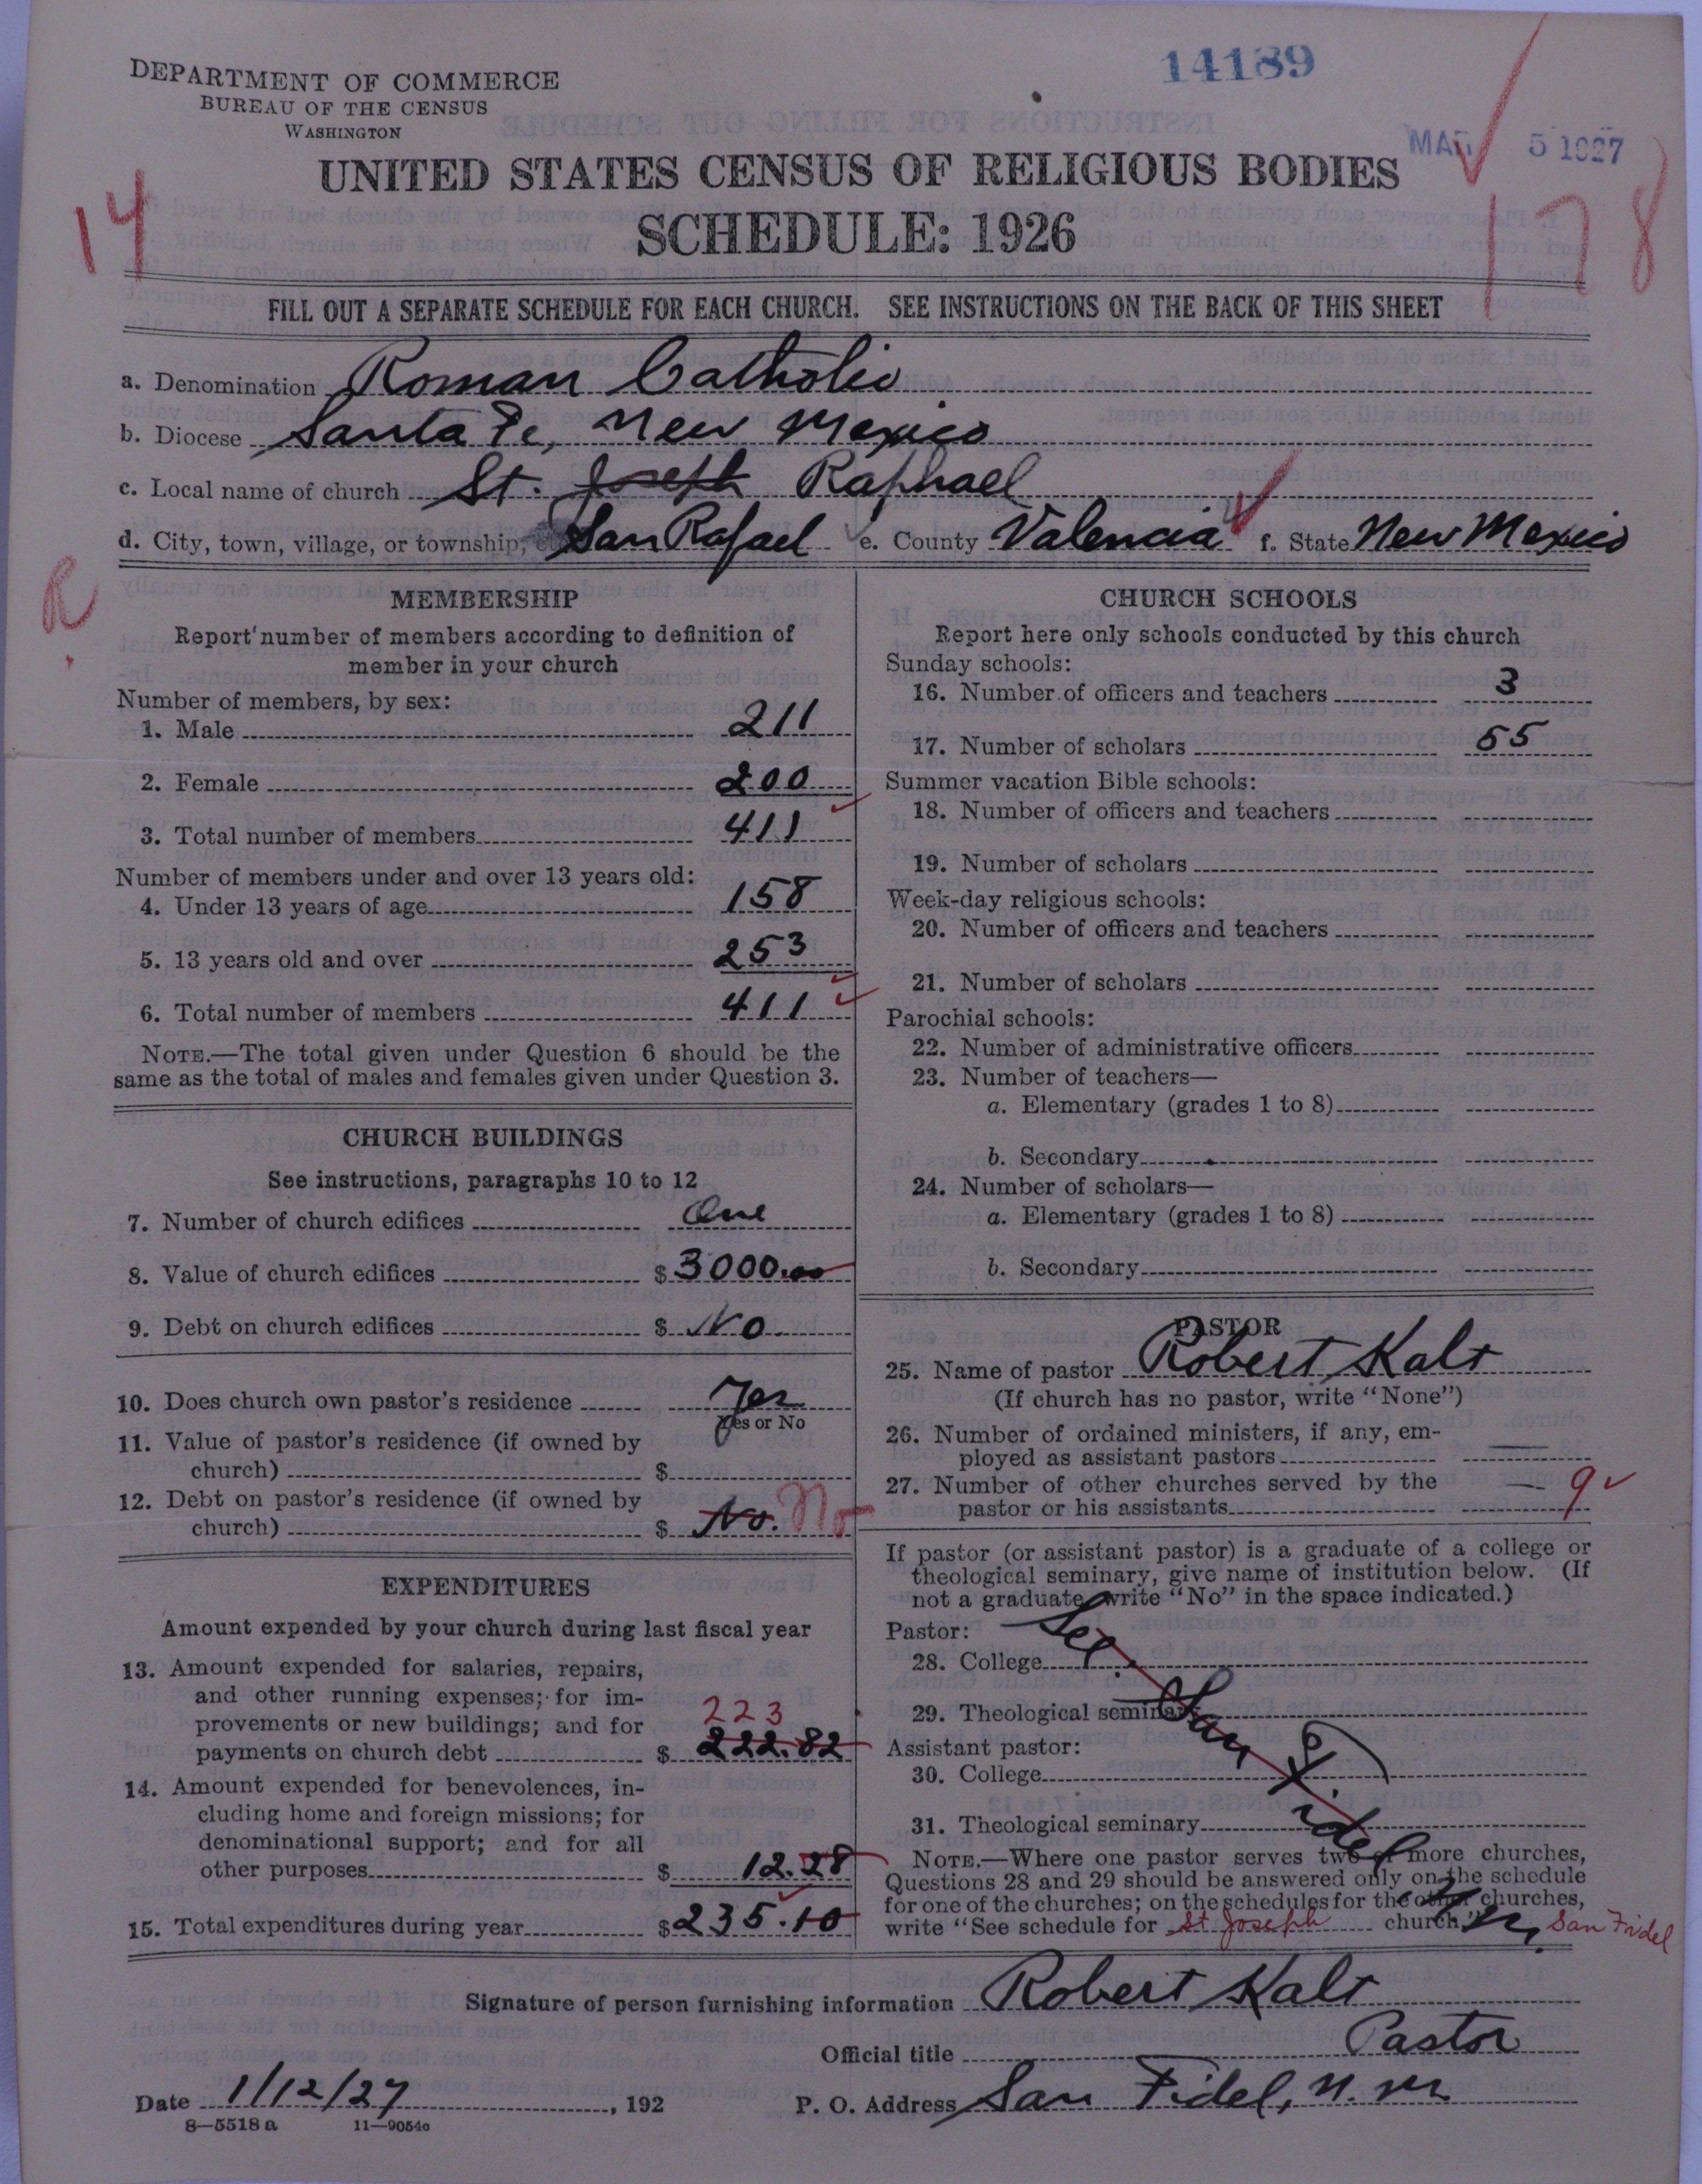 14189
DEPARTMENT OF COMMERCE
BUREAU OF THE CENSUS
WASHINGTON
MAR 5 1927
UNITED STATES CENSUS OF RELIGIOUS BODIES
SCHEDULE: 1926
14
178
FILL OUT A SEPARATE SCHEDULE FOR EACH CHURCH. SEE INSTRUCTIONS ON THE BACK OF THIS SHEET
a. Denomination Roman Catholic
b. Diocese Santa Fe, New Mexico
c. Local name of church St. Joseph Raphael
d. City, town, village, or township, San Rafael e. County Valencia f. State New Mexico
R.
MEMBERSHIP
Report number of members according to definition of
member in your church
Number of members, by sex:
1. Male 211
2. Female 200
3. Total number of members 411
Number of members under and over 13 years old:
4. Under 13 years of age 158
5. 13 years old and over 253
6. Total number of members 411
NOTE.—The total given under Question 6 should be the
same as the total of males and females given under Question 3.
CHURCH BUILDINGS
See instructions, paragraphs 10 to 12
7. Number of church edifices One
8. Value of church edifices $ 3000.00
9. Debt on church edifices $ No
10. Does church own pastor's residence Yes
Yes or No
11. Value of pastor's residence (if owned by
church) $
12. Debt on pastor's residence (if owned by
church) $ No. No
EXPENDITURES
Amount expended by your church during last fiscal year
13. Amount expended for salaries, repairs,
and other running expenses; for im-
provements or new buildings; and for
223
payments on church debt $ 222.82
14. Amount expended for benevolences, in-
cluding home and foreign missions; for
denominational support; and for all
other purposes $ 12.28
15. Total expenditures during year $ 235.10
CHURCH SCHOOLS
Report here only schools conducted by this church
Sunday schools:
16. Number of officers and teachers 3
17. Number of scholars 55
Summer vacation Bible schools:
18. Number of officers and teachers
19. Number of scholars
Week-day religious schools:
20. Number of officers and teachers
21. Number of scholars
Parochial schools:
22. Number of administrative officers
23. Number of teachers—
a. Elementary (grades 1 to 8)
b. Secondary
24. Number of scholars—
a. Elementary (grades 1 to 8)
b. Secondary
PASTOR
25. Name of pastor Robert Kalt
(If church has no pastor, write "None")
26. Number of ordained ministers, if any, em-
ployed as assistant pastors —
27. Number of other churches served by the
pastor or his assistants — 9
If pastor (or assistant pastor) is a graduate of a college or
theological seminary, give name of institution below. (If
not a graduate write "No" in the space indicated.)
Pastor:
28. College
29. Theological seminary
Assistant pastor:
30. College
31. Theological seminary
See San Fidel N.M.
NOTE.—Where one pastor serves two or more churches,
Questions 28 and 29 should be answered only on the schedule
for one of the churches; on the schedules for the other churches,
write "See schedule for St Joseph church" San Fidel
Signature of person furnishing information Robert Kalt
Official title Pastor
Date 1/12/27, 192 P. O. Address San Fidel, N. M.
8—5518 a 11—9054a